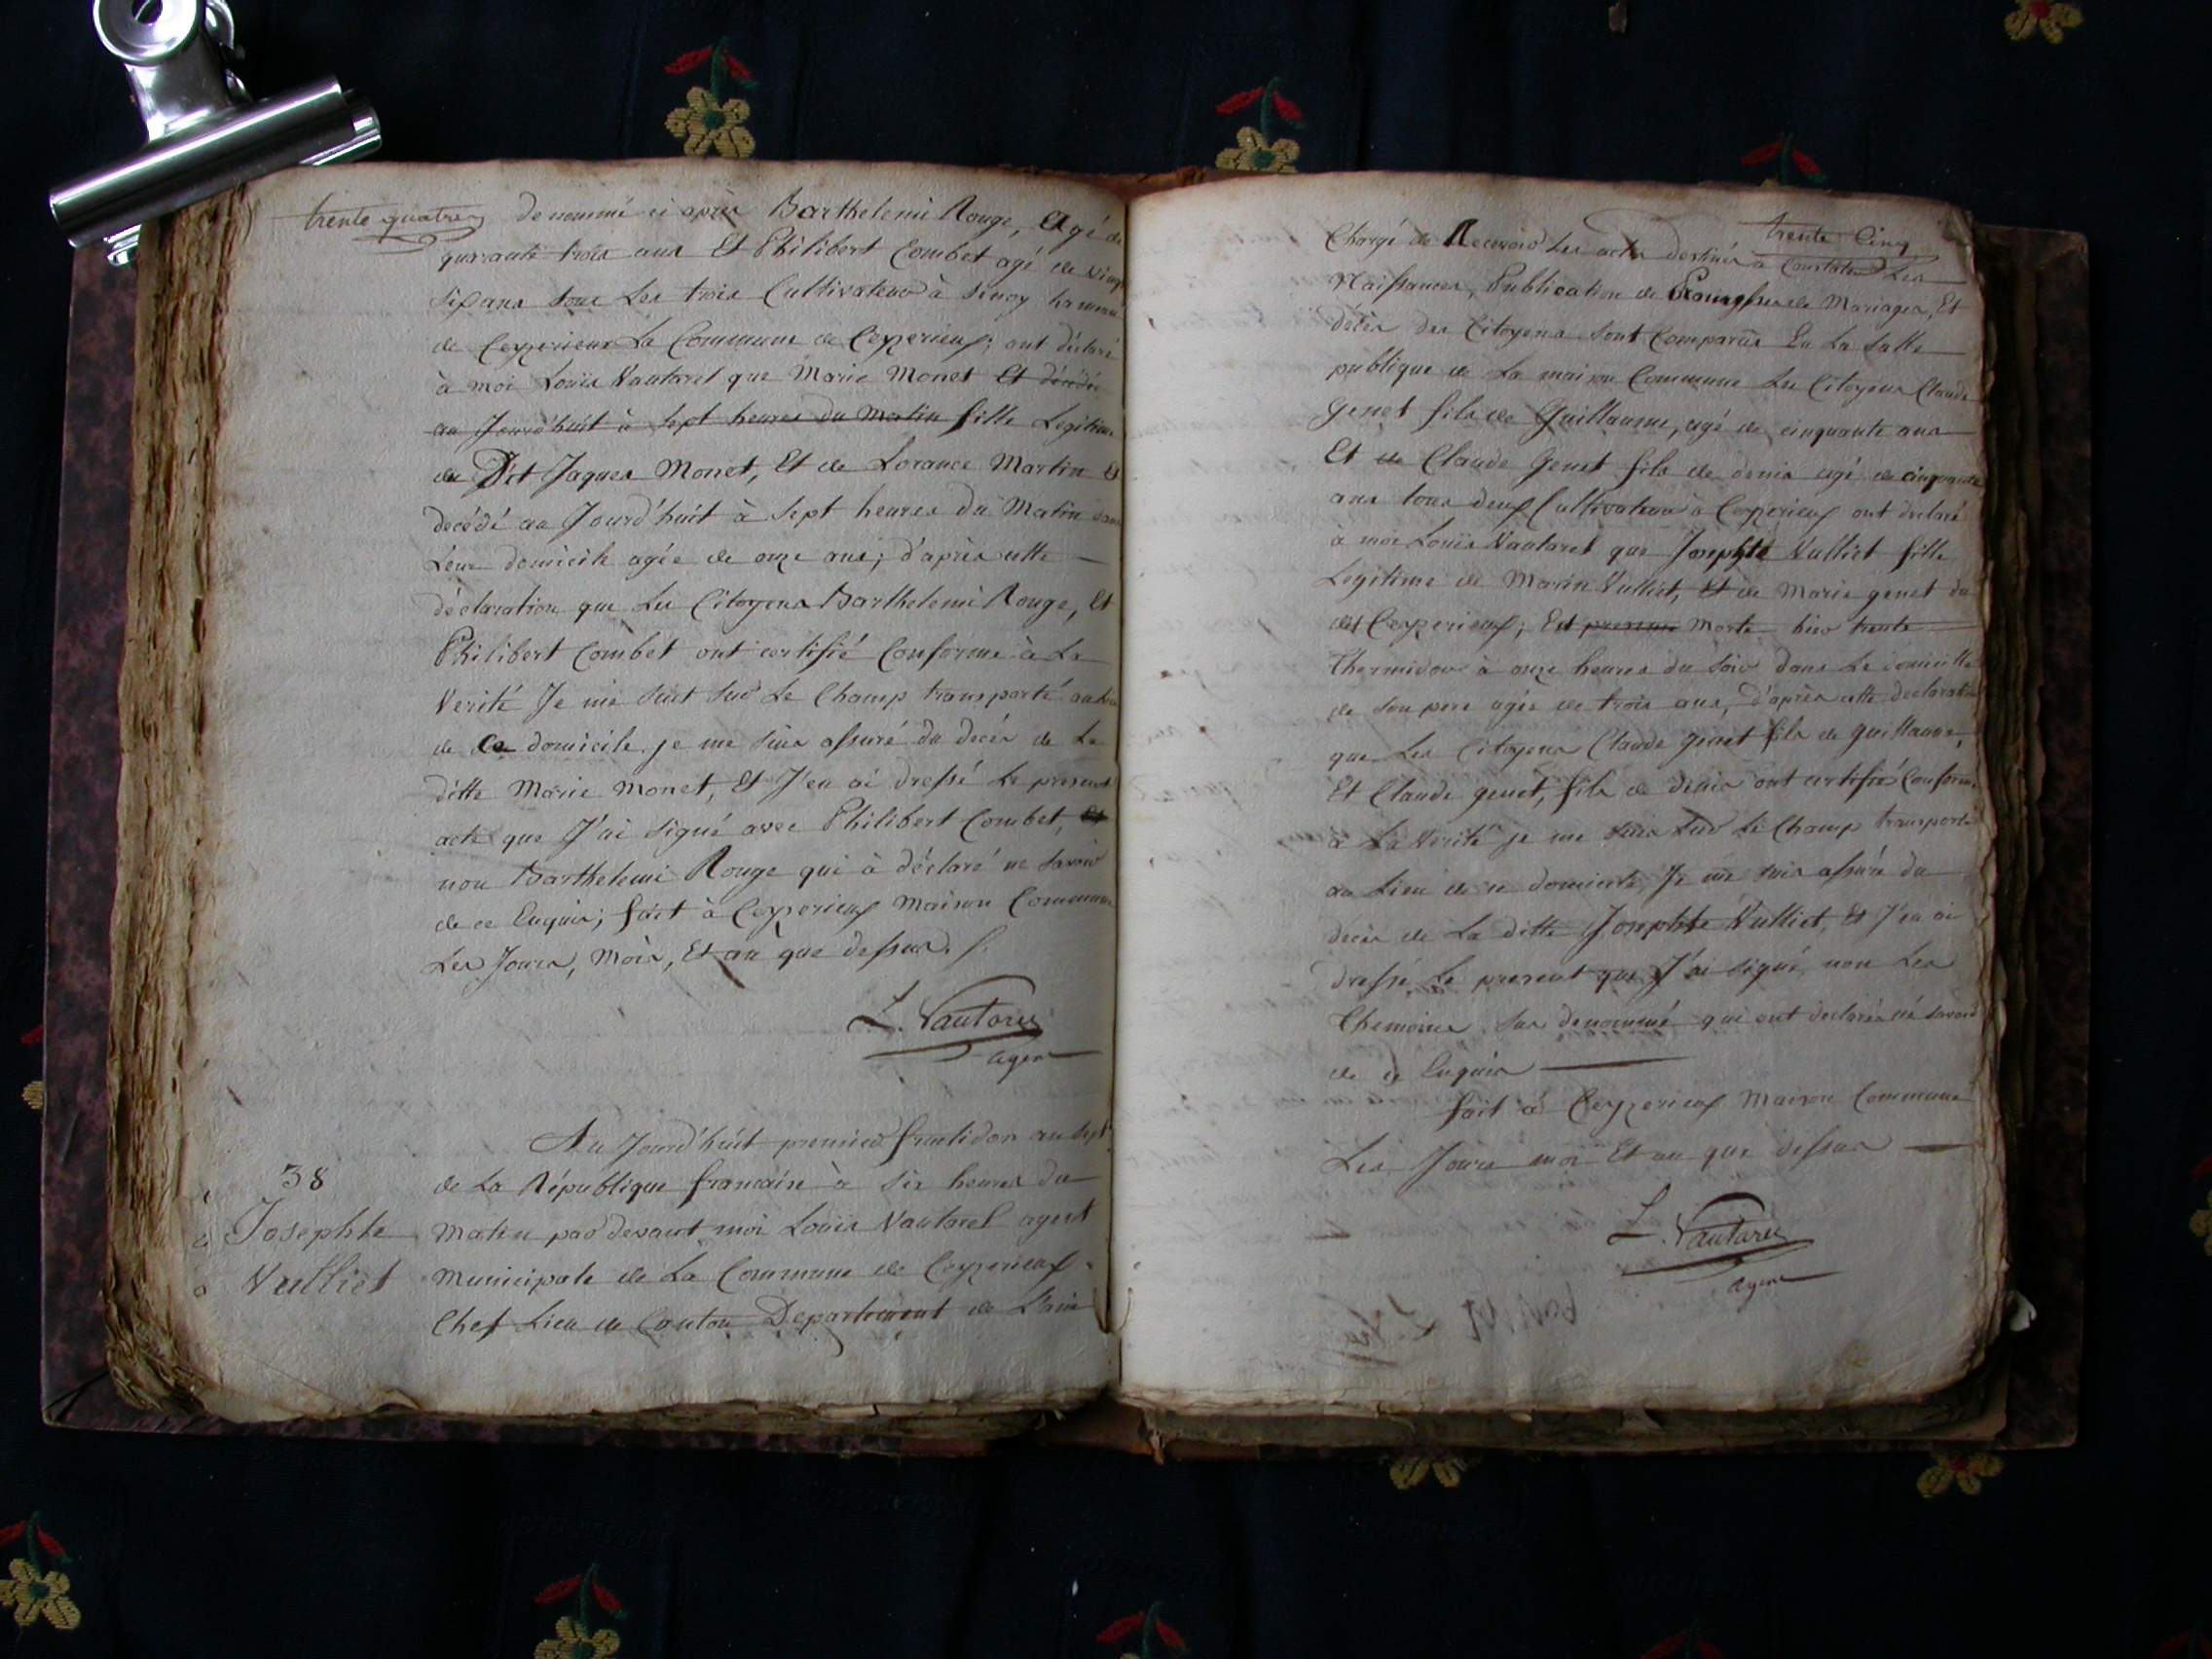 trente quatre
denommé ci après Barthelemi Rouge, Agé de
quarante trois ans Et Philibert Combet agé de vingt
six ans tous Les trois Cultivateur à sinoy hammau
de Ceyzerieux La Commune de Ceyzerieux; ont déclaré
à moi Louis Vautaret que Marie Monet Et décédée
au Jourd'huit à sept heures du Matin fille Legitime
de Dit Jaques Monet, Et de Lorance Martin Et
decédé au Jourd'huit à sept heures du Matin dans
Leur domicile agée de onze ans; d'après cette
déclaration que Les Citoyens Barthelemi Rouge, Et
Philibert Combet ont certifié Conforme à La
Verité Je me suit sur Le Champ transporté au lieu
de Ce domicile je me suis assuré du decès de La
ditte Marie Monet, Et J'en ai dressé Le present
acte que J'ai signé avec Philibert Combet, Et
non Barthelemi Rouge qui à déclaré ne savoir
de ce Enquis; fait à Ceyzerieux Maison Commune
Les Jours, Mois, Et an que dessus.
L. Vautaret
agent
38
Josephte
Vulliet
Au Jourd'huit premier fructidor an sept
de La République francaise à six heures du
Matin par devant moi Louis Vautaret agent
Municipale de La Commune de Ceyzerieux
Chef Lieu de Canton Departement de L'ain
trente Cinq
Chargé de Recevoir Les actes destinés à Constater Les
Naissances, Publication de Promesses de Mariages, Et
décès des Citoyens sont Comparus En La Salle
publique de La maison Commune Les Citoyens Claude
Genet fils de Guillaume, agé de cinquante ans
Et de Claude Genet fils de denis agé de cinquante
ans tous deux Cultivateur à Ceyzerieux ont declaré
à moi Louis Vautaret que Josephte Vulliet fille
Legitime de Marin Vulliet, Et de Marie genet du
dit Ceyzerieux; Est Morte hier trente
Thermidor à onze heures du soir dans Le domicille
de son pere agée de trois ans, d'après cette declaration
que Les Citoyens Claude genet fils de guillaume,
Et Claude genet, fils de denis ont certifié Conforme
à La Verité je me suis sur Le Champ transporté
au Lieu de ce domicile, Je me suis assuré du
decès de La ditte Josephte Vulliet, Et J'en ai
dressé Le present que J'ai signé non Les
Themoins sus denommé qui ont declarés né savoir
de ce Enquis
fait à Ceyzerieux Maison Commune
Les Jours moi Et an que dessus
L. Vautaret
agent